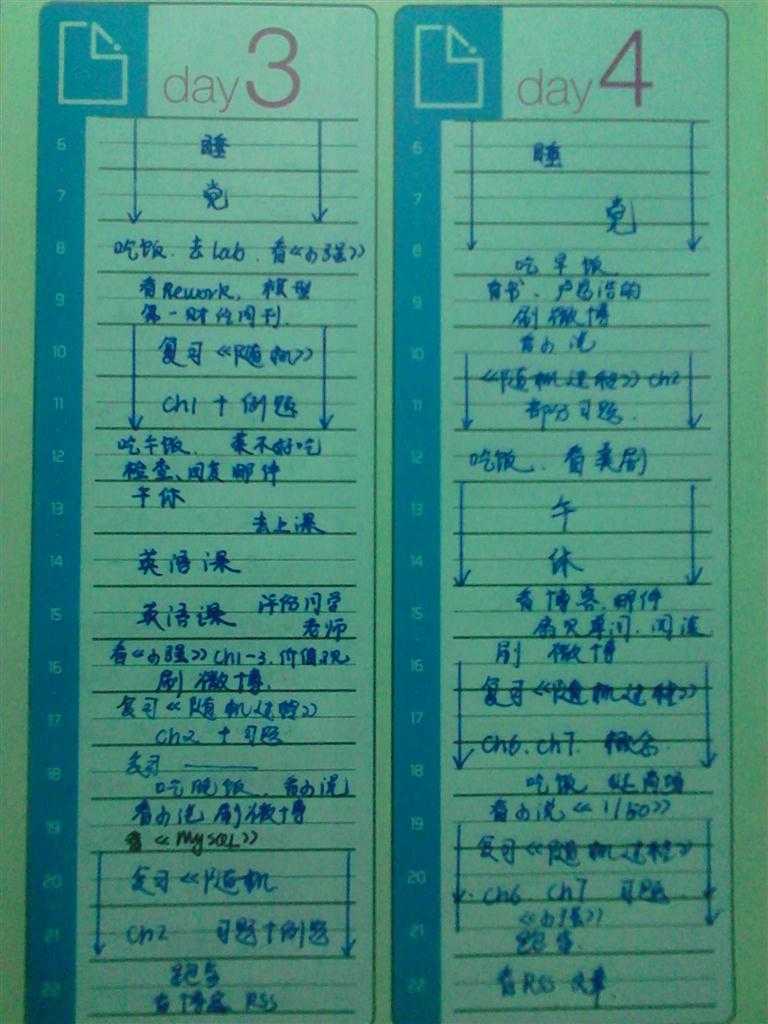 day3
6
睡
7
觉
8
吃饭、去Lab、看《小强》
看Rework, 模型
9
第一财经周刊
10
复习《随机》
11
ch1 + 例题
吃午饭、菜不好吃
12
检查、回复邮件
13
午休
去上课
14
英语课
15
英语课
同学
老师
看《小强》ch1-3,价值观
16
刷微博
17
复习《随机过程》
ch2 + 习题
18
复习
吃晚饭、看小说
看小说 刷微博
19
看《MySQL》
20
复习《随机
21
ch2 习题+例题
跑步
22
看博客 RSS
day4
6
睡
7
觉
8
吃早饭
看书、卢思浩的
9
刷微博
看小说
10
《随机过程》ch2
11
部分习题
12
吃饭、看美剧
13
午
14
休
看博客,邮件
15
刷 微博
16
复习《随机过程》
17
ch6、ch7 概念
18
吃饭
看小说《1/60》
19
复习《随机过程》
20
ch6、ch7 习题
《小强》
21
跑步
22
看RSS 文章